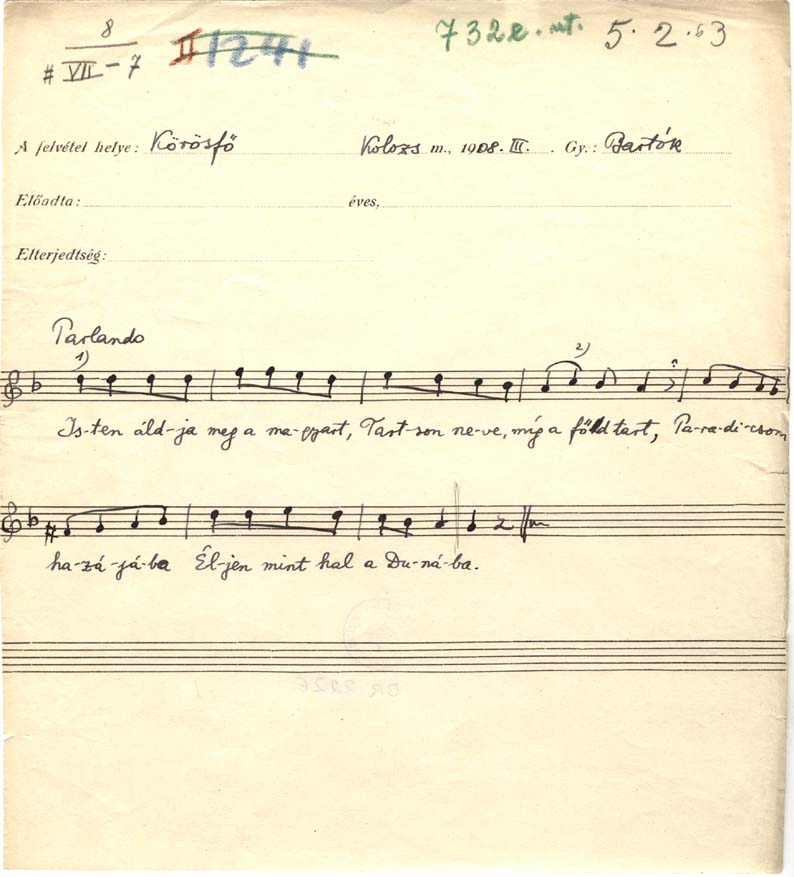 8
# VII - 7
II 1241
732e. mt.
5. 2. 53
A felvétel helye: Körösfő Kolozs m., 1908. III. Gy.: Bartók
Előadta: éves,
Elterjedtség:
Parlando
1) 2)
Is-ten áld-ja meg a ma-gyart, Tart-son ne-ve, míg a föld tart, Pa-ra-di-csom
ha-zá-já-ba Él-jen mint hal a Du-ná-ba.
BR 2226